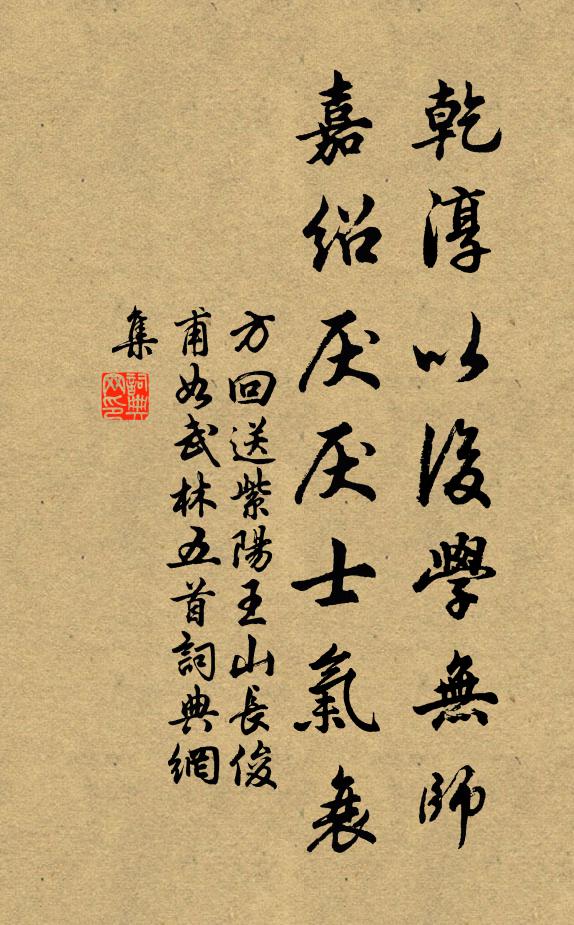 乾淳以後學無師
嘉紹厌厌士氣衰
方回送紫陽王山長俊
甫如武林五首詞典網
集
詞典网印